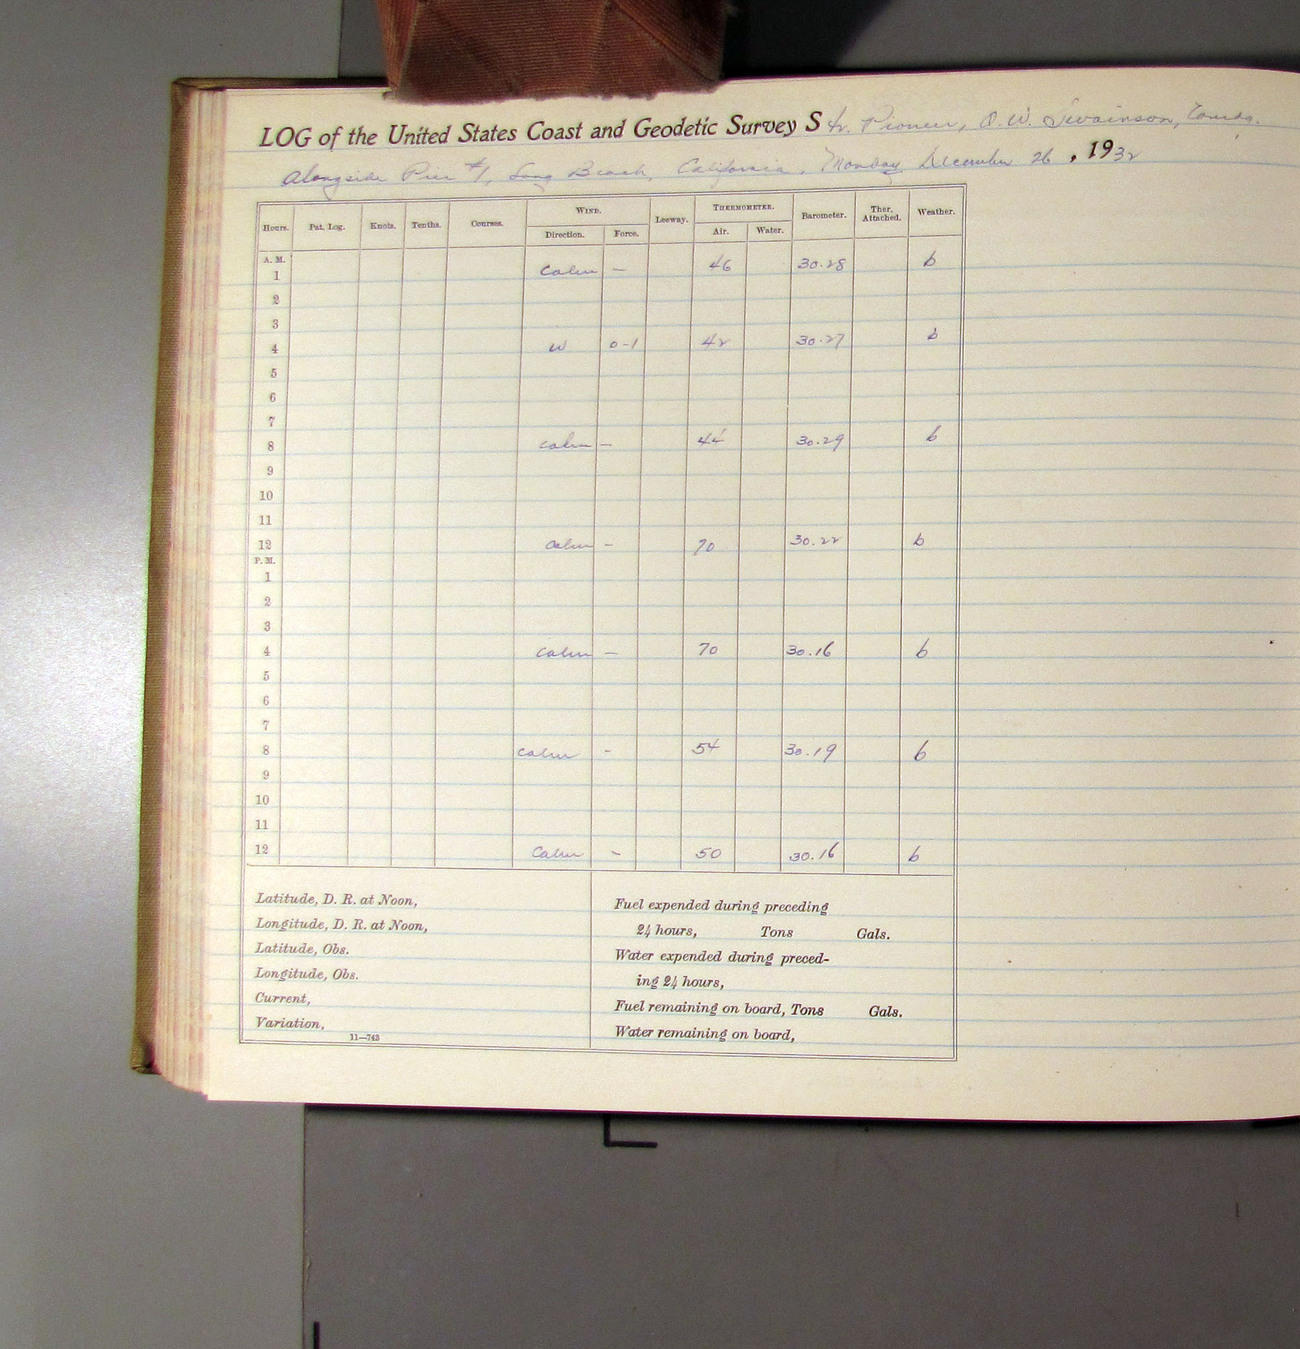 LOG of the United States Coast and Geodetic Survey Str. Pioneer, O.W. Swainson, Comdg.
Alongside Pier #1, Long Beach, California, Monday December 26, 1932
Hours. Pat. Log. Knots. Tenths. Courses. WIND. Leeway. THERMOMETER. Barometer. Ther. Attached. Weather.
Direction. Force. Air. Water.
A. M.
1 Calm – 46 30.28 b
2
3
4 W 0-1 42 30.27 b
5
6
7
8 calm – 44 30.29 b
9
10
11
12 calm – 70 30.22 b
P. M.
1
2
3
4 calm – 70 30.16 b
5
6
7
8 calm - 54 30.19 b
9
10
11
12 Calm - 50 30.16 b
Latitude, D. R. at Noon,
Longitude, D. R. at Noon,
Latitude, Obs.
Longitude, Obs.
Current,
Variation,
11—743
Fuel expended during preceding
24 hours, Tons Gals.
Water expended during preced-
ing 24 hours,
Fuel remaining on board, Tons Gals.
Water remaining on board,